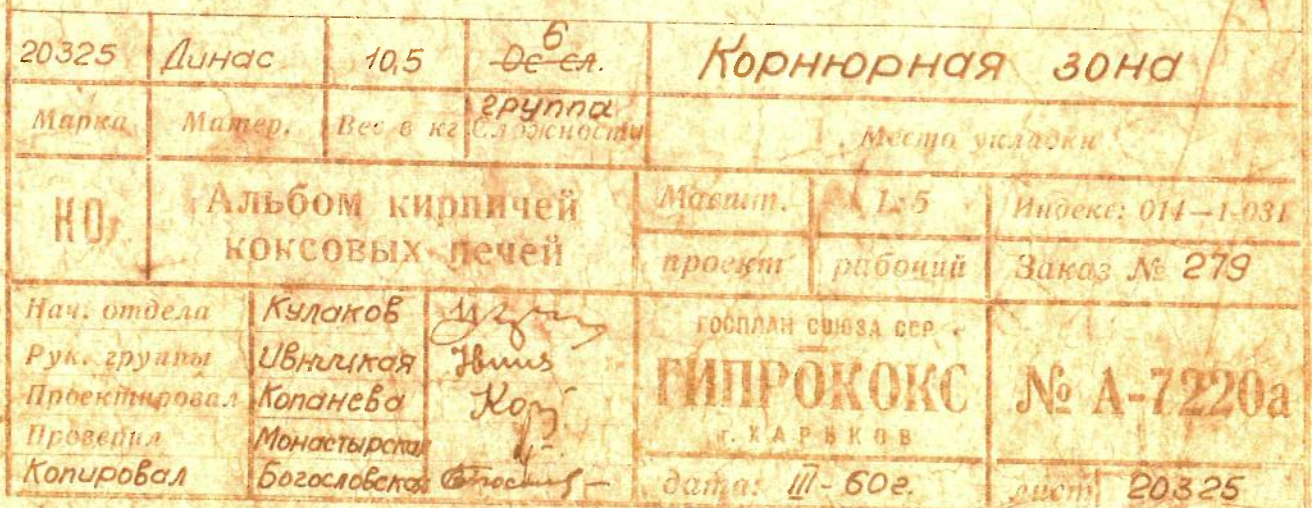 20325 Динас 10,5 6 Ос сл. Корнюрная зона
Марка Матер. Вес в кг группа Сложности Место укладки
КО Альбом кирпичей коксовых печей
Масшт. 1:5 Индекс: 014-1-031
проект рабочий Заказ № 279
Нач. отдела Кулаков
Рук. группы
Проектировал Копанева
Проверил Монастырская
Копировал Богословская
ГОСПЛАН СОЮЗА ССР
ГИПРОКОКС
г. ХАРЬКОВ
дата: III-60г.
№ А-7220а
лист 20325